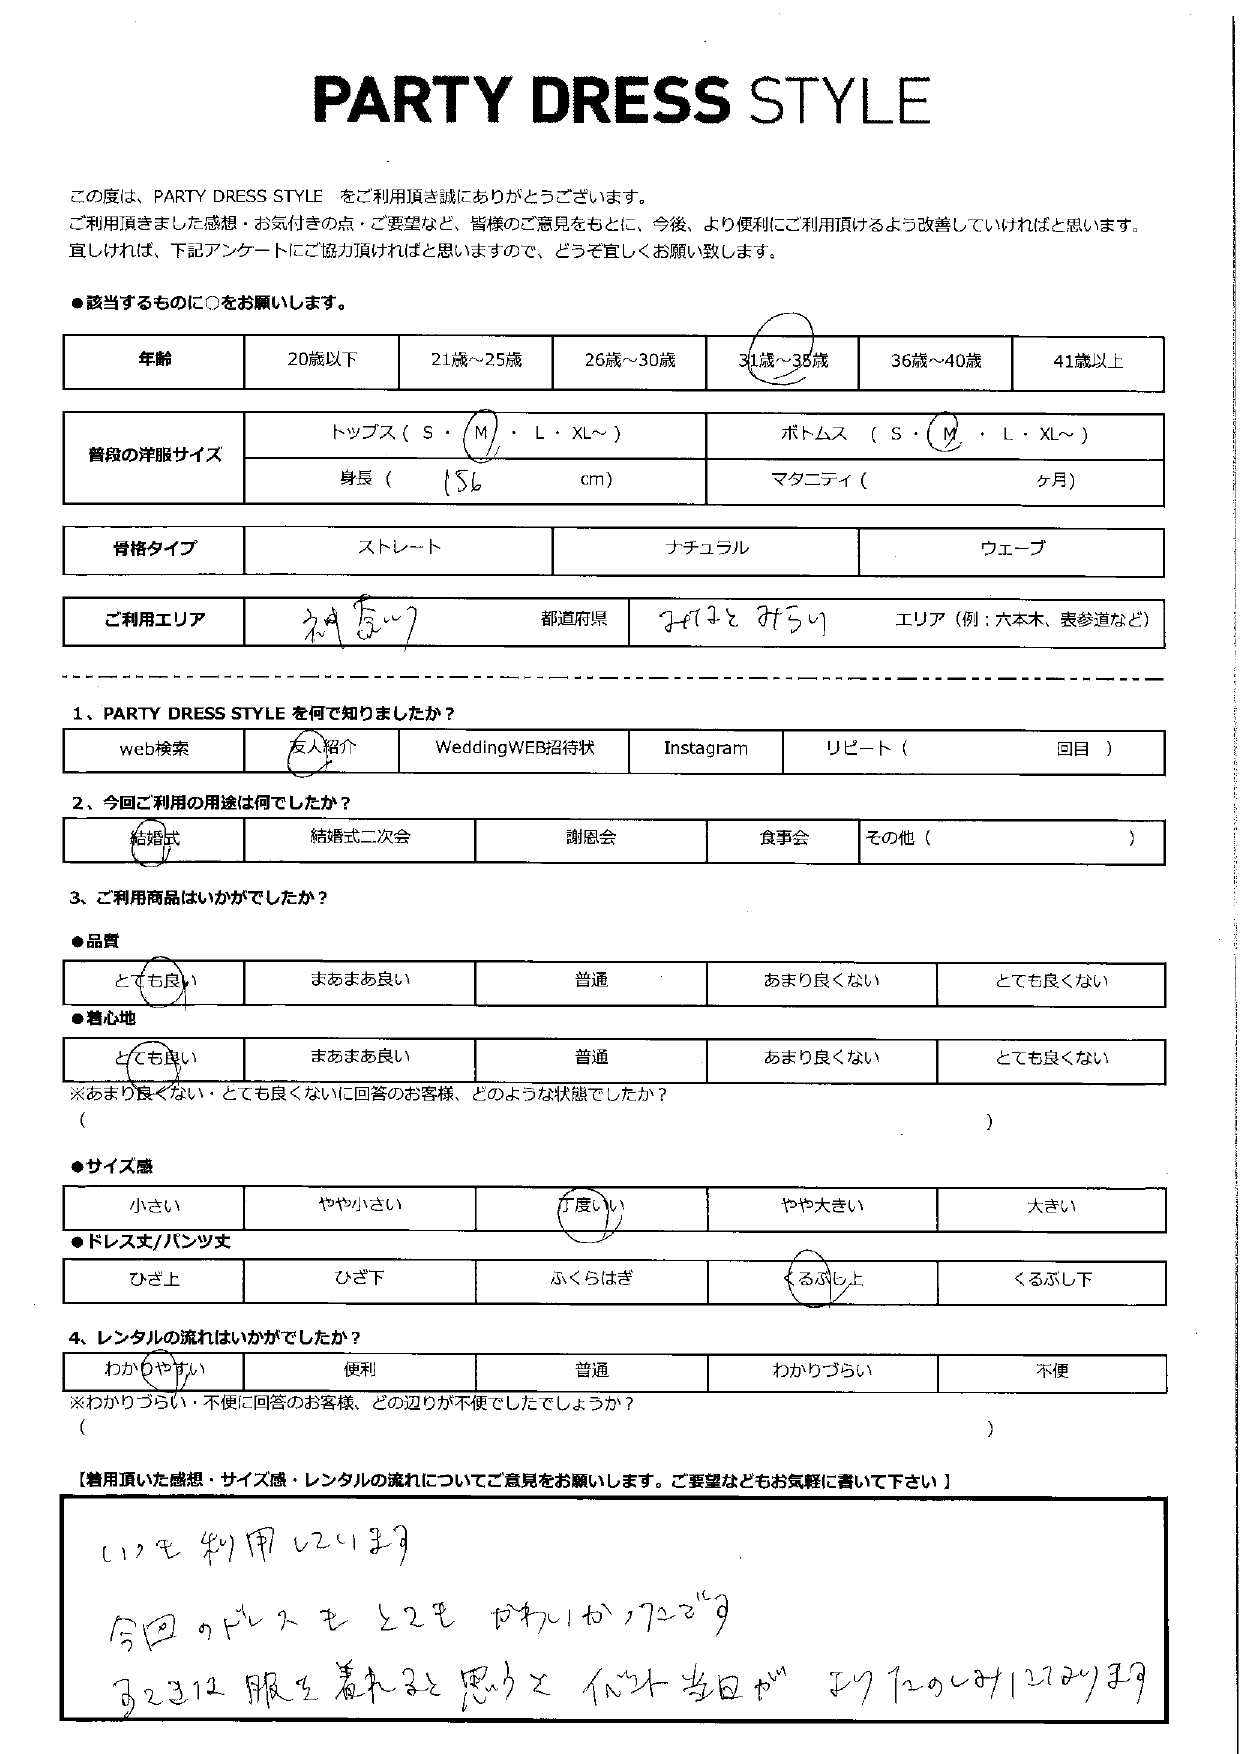 PARTY DRESS STYLE
この度は、PARTY DRESS STYLE をご利用頂き誠にありがとうございます。
ご利用頂きました感想・お気付きの点・ご要望など、皆様のご意見をもとに、今後、より便利にご利用頂けるよう改善していければと思います。
宜しければ、下記アンケートにご協力頂ければと思いますので、どうぞ宜しくお願い致します。
●該当するものに○をお願いします。
年齢 20歳以下 21歳～25歳 26歳～30歳 31歳～35歳 36歳～40歳 41歳以上
普段の洋服サイズ トップス ( S ・ M ・ L ・ XL～ ) ボトムス ( S ・ M ・ L ・ XL～ )
身長 ( 156 cm) マタニティ ( ヶ月)
骨格タイプ ストレート ナチュラル ウェーブ
ご利用エリア 神奈川 都道府県 みなとみらい エリア（例：六本木、表参道など）
1、PARTY DRESS STYLE を何で知りましたか？
web検索 友人紹介 WeddingWEB招待状 Instagram リピート ( 回目 )
2、今回ご利用の用途は何でしたか？
結婚式 結婚式二次会 謝恩会 食事会 その他 ( )
3、ご利用商品はいかがでしたか？
●品質
とても良い まあまあ良い 普通 あまり良くない とても良くない
●着心地
とても良い まあまあ良い 普通 あまり良くない とても良くない
※あまり良くない・とても良くないに回答のお客様、どのような状態でしたか？
( )
●サイズ感
小さい やや小さい 丁度いい やや大きい 大きい
●ドレス丈/パンツ丈
ひざ上 ひざ下 ふくらはぎ くるぶし上 くるぶし下
4、レンタルの流れはいかがでしたか？
わかりやすい 便利 普通 わかりづらい 不便
※わかりづらい・不便に回答のお客様、どの辺りが不便でしたでしょうか？
( )
【着用頂いた感想・サイズ感・レンタルの流れについてご意見をお願いします。ご要望などもお気軽に書いて下さい 】
いつも利用しています
今回のドレスもとてもかわいかったです
すてきな服を着れると思うとイベント当日がよりたのしみにしております